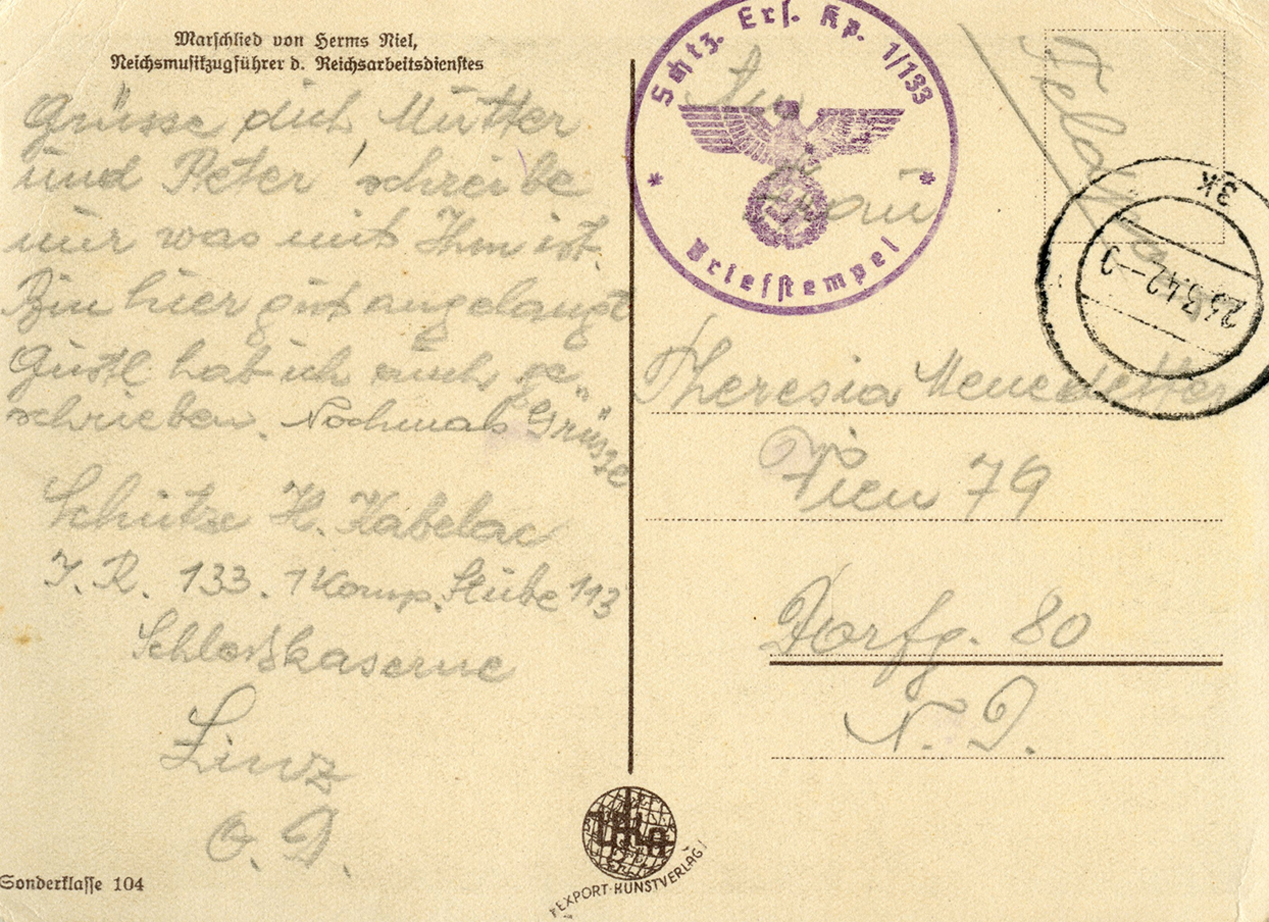 Marschlied von Herms Niel,
Reichsmusikzugführer d. Reichsarbeitsdienstes
Grüsse dich Mutter
und Peter schreibe
mir was mit Ihm ist.
Bin hier gut angelangt
Gustl hab ich auch ge-
schrieben. Nochmals Grüsze
Schütze H. Kabelac
I. R. 133. 1 Komp. Stube 113
Schloßkaserne
Linz
O. D.
Sonderklasse 104
Schtz. Ers. Kp. 1/133
Briefstempel
An
Frau
Feldpost
3k
23.3.42
Theresia
Wien 79
Dorfg. 80
N. D.
EXPORT-KUNSTVERLAG